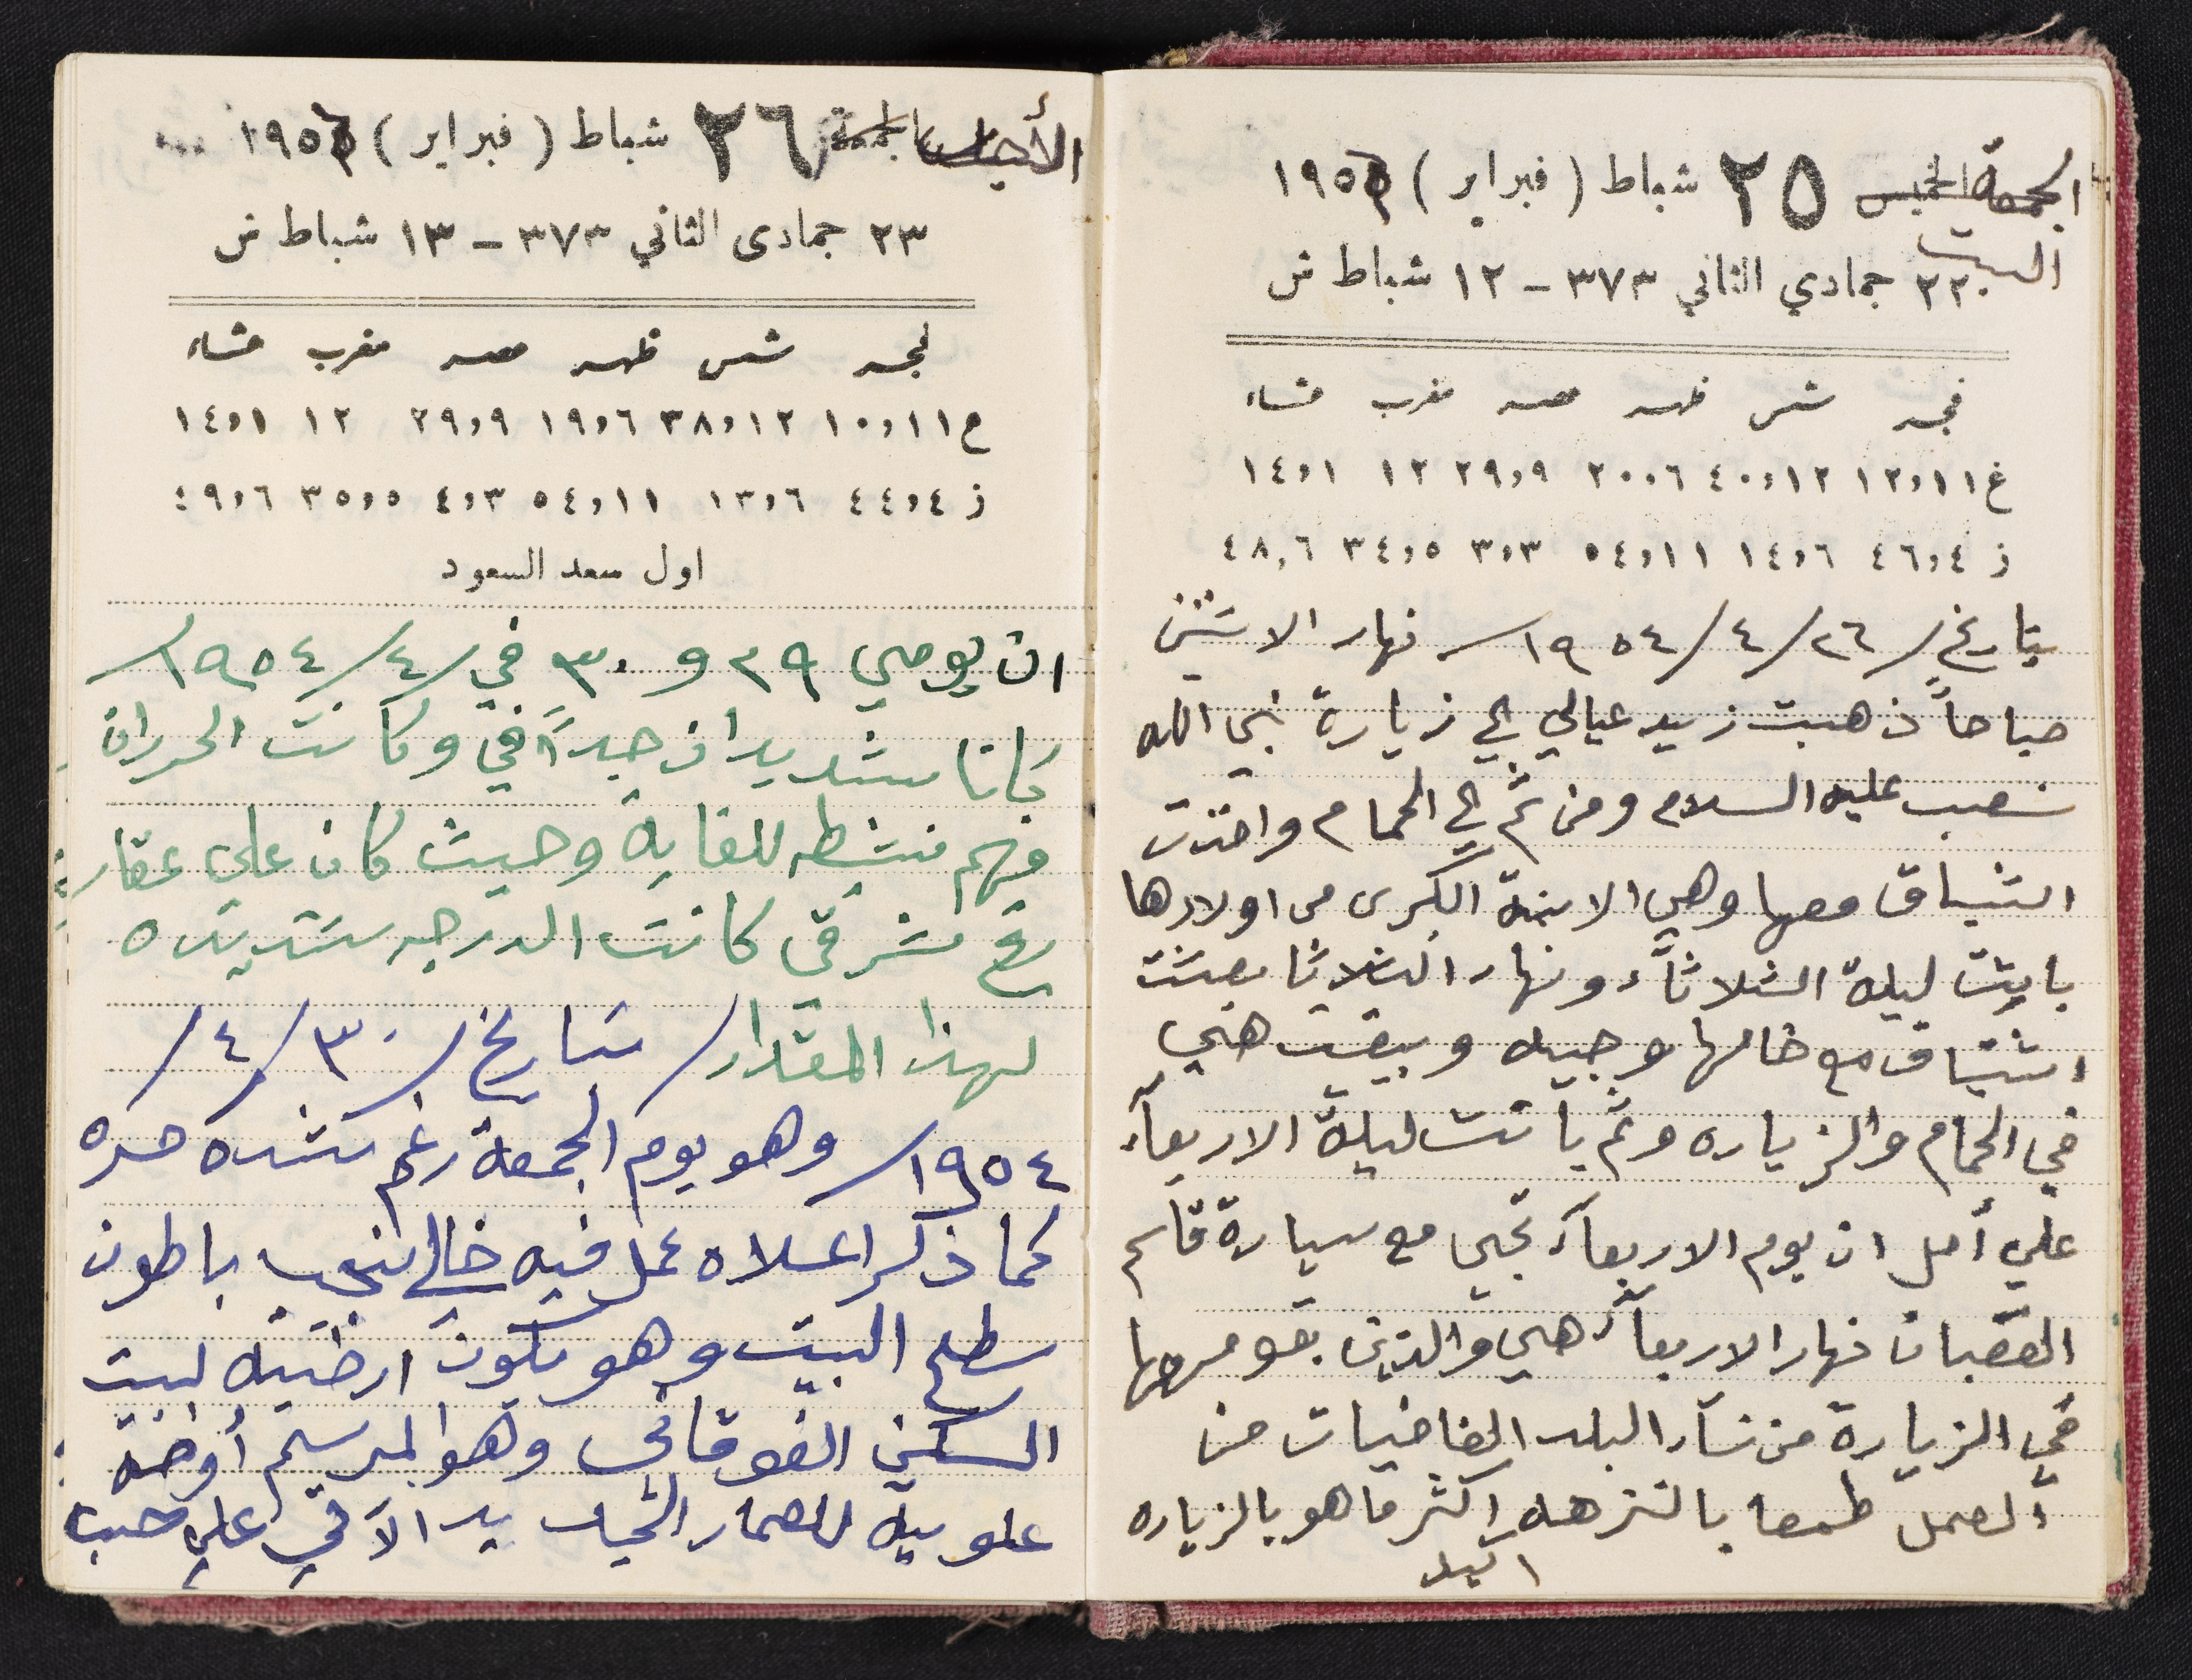 الجمعة الخميس ٢٥ شباط ( فبراير ) ١٩٥٦
السبت
٢٢ جمادي الثاني ٣٧٣ – ١٢ شباط ش
فجر شمس ظهر عصر مغرب عشاء
غ ١٢,١١ ٤٠,١٢ ٢٠,٦ ٢٩,٩ ١٢ ١٤,١
ز ٤٦,٤ ١٤,٦ ٥٤,١١ ٣,٣ ٣٤,٥ ٤٨,٦
بتاريخ/٢٦/٤/١٩٥٤/ نهار الاثنين
صباحاً ذهبت زيد عيالي الى زيارة نبي الله
شعيب عليه السلام ومن ثم الى الحمام واخذت
اشتياق معها وهي الابنة الكبرى من اولادها
باتت ليلة الثلاثاء ونهار الثلاثا بعثت
اشتياق مع خالها وجيه وبقيت هي
في الحمام والزياره وثم باتت ليلة الاربعآء
على أمل ان يوم الاربعآء تجي مع سيارة قاسم
الغضبان نهار الاربعآء هي والذين بقو معها
في الزيارة من نسآء البلد الفاضيات من
العمل طمعا بالنزهه اكثر ما هو بالزياره
الأحد الجمعة ٢٦ شباط ( فبراير ) ١٩٥٦
٢٣ جمادى الثاني ٣٧٣ – ١٣ شباط ش
فجر شمس ظهر عصر مغرب عشاء
ع ١٠,١١ ٣٨,١٢ ١٩,٦ ٢٩,٩ ١٢ ١٤,١
ز ٤٤,٤ ١٣,٦ ٥٤,١١ ٤,٣ ٣٥,٥ ٤٩,٦
اول سعد السعود
ان يومي ٢٩ و ٣٠ في/٤/١٩٥٤/
كانا شديدان جداً في وكانت الحراره
فيهم نشطه للغاية وحيث كان على عقار
ريح شرقي كانت الدرجه شديده
لهذا المقدار/ بتاريخ/٣٠/٤/
١٩٥٤/ وهو يوم الجمعة رغم شدة حره
كما ذكر اعلاه عمل فيه خالي نجيب باطون
سطح البيت وهو يكون ارضية لبيت
السكن الفوقاني وهو المرسيم أوضه
علويه للعمار الجديد الآتي على حسب